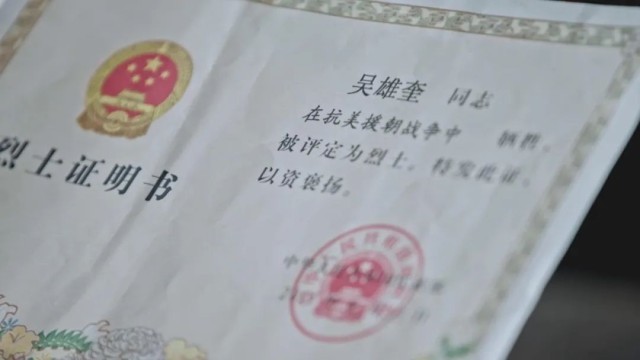 烈士证明书
吴雄奎 同志
在抗美援朝战争中 牺牲,
被评定为烈士。特发此证,
以资褒扬。